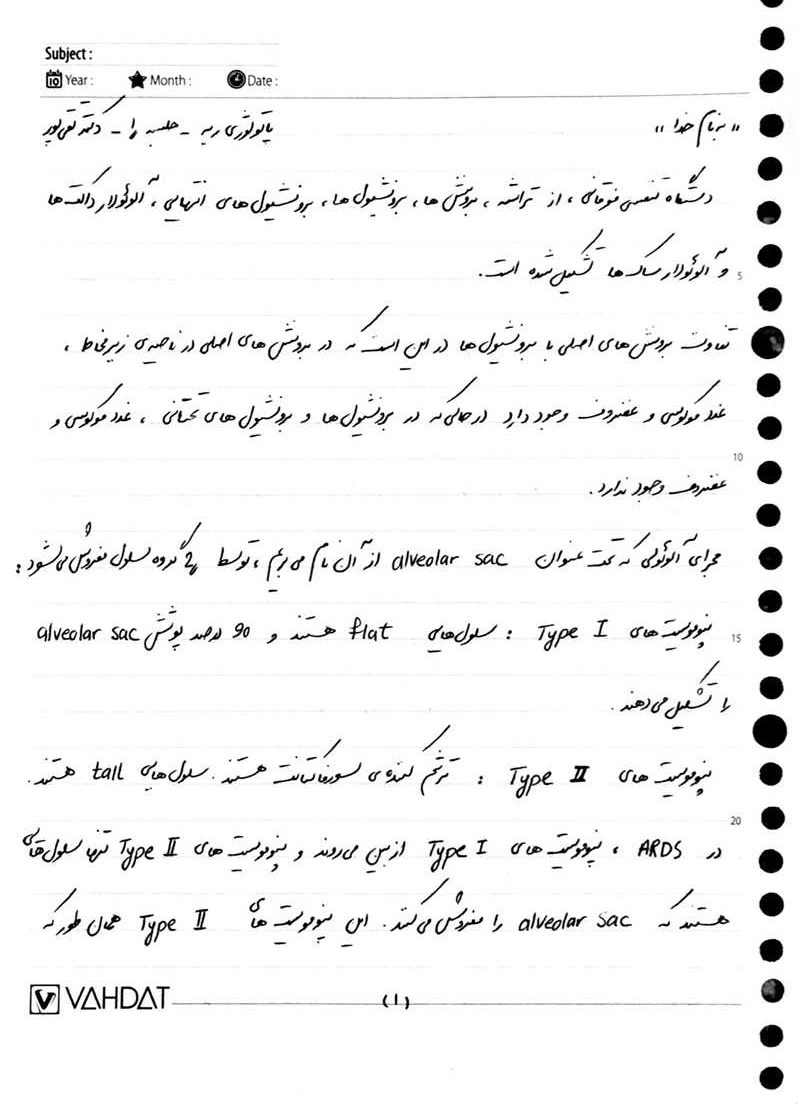 Subject :
Year : Month : Date :
« به نام خدا » پاتولوژی ریه - جلسه ۱ - دکتر تقی پور
دستگاه تنفسی فوقانی ، از تراشه ، برونش ها ، برونشیول ها ، برونشیول های انتهایی ، آلوئولار داکت ها
و آلوئولار ساک ها تشکیل شده است .
5
تفاوت برونش های اصلی با برونشیول ها در این است که در برونش های اصلی در ناحیه ی زیرمخاط ،
غدد موکوسی و غضروف وجود دارد درحالی که در برونشیول ها و برونشیول های تحتانی ، غدد موکوسی و
10
غضروف وجود ندارد .
مجرای آلوئولی که تحت عنوان alveolar sac از آن نام می بریم ، توسط ۲ گروه سلول مفروش می شود :
پنوموسیت های Type I : سلول هایی flat هستند و 90 درصد پوشش alveolar sac
15
را تشکیل می دهند .
پنوموسیت های Type II : ترشح کننده ی سورفاکتانت هستند . سلول هایی tall هستند .
20
در ARDS ، پنوموسیت های Type I ازبین می روند و پنوموسیت های Type II تنها سلول هایی
هستند که alveolar sac را مفروش می کنند . این پنوموسیت های Type II همان طور که
VAHDAT
(۱)